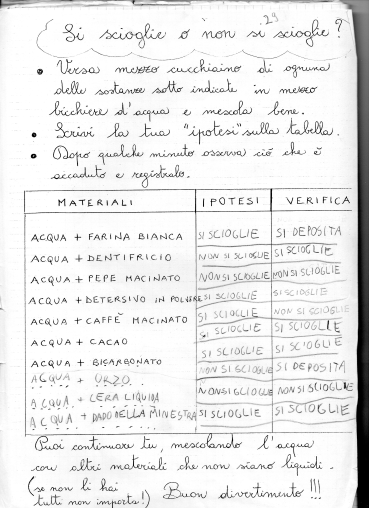 29
Si scioglie o non si scioglie?
• Versa mezzo cucchiaino di ognuna
delle sostanze sotto indicate in mezzo
bicchiere d'acqua e mescola bene.
• Scrivi la tua "ipotesi" sulla tabella.
• Dopo qualche minuto osserva ciò che è
accaduto e registralo.
MATERIALI IPOTESI VERIFICA
ACQUA + FARINA BIANCA SI SCIOGLIE SI DEPOSITA
ACQUA + DENTIFRICIO NON SI SCIOGLIE SI SCIOGLIE
ACQUA + PEPE MACINATO NON SI SCIOGLIE NON SI SCIOGLIE
ACQUA + DETERSIVO IN POLVERE SI SCIOGLIE SI SCIOGLIE
ACQUA + CAFFÈ MACINATO SI SCIOGLIE NON SI SCIOGLIE
ACQUA + CACAO SI SCIOGLIE SI SCIOGLIE
ACQUA + BICARBONATO SI SCIOGLIE SI SCIOGLIE
ACQUA + ORZO NON SI SCIOGLIE SI DEPOSITA
ACQUA + CERA LIQUIDA NON SI GLIOGLIE NON SI SCIOGLIE
ACQUA + DADO NELLA MINESTRA SI SCIOGLIE SI SCIOGLIE
Puoi continuare tu, mescolando l'acqua
con altri materiali che non siano liquidi.
(se non li hai
tutti non importa!) Buon divertimento!!!